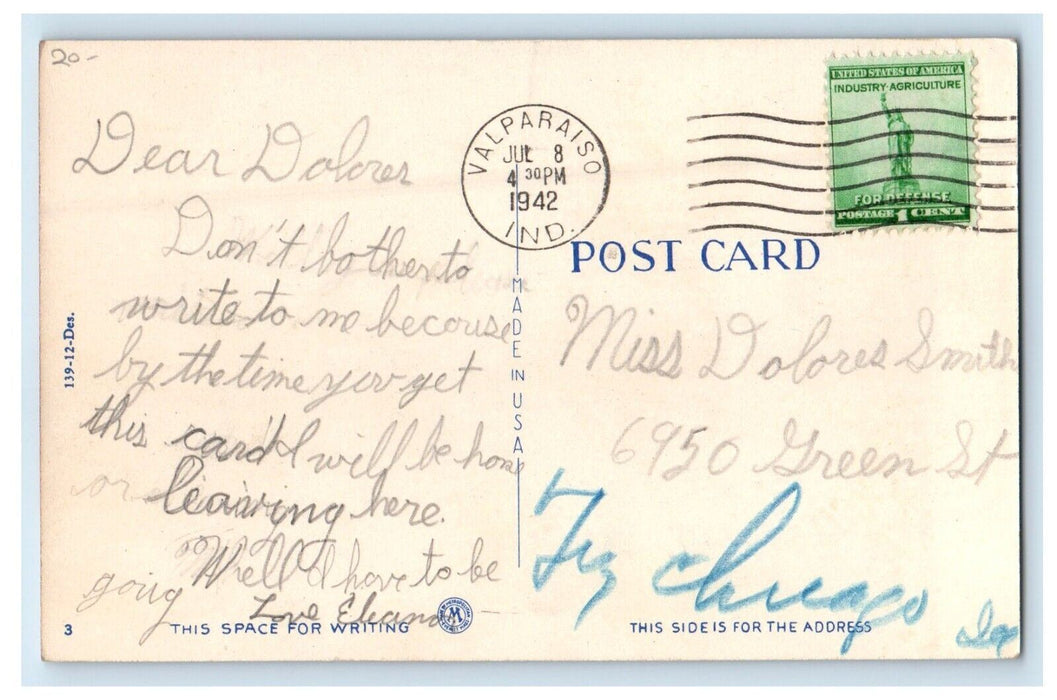 20-
Dear Dolores
Don't bother to
write to me because
by the time you get
this card I will be home
or leaving here.
Well I have to be
going
Love Eleanor
139-12-Des.
3
THIS SPACE FOR WRITING
VALPARAISO
JUL 8
4 30 PM
1942
IND.
MADE IN USA
UNITED STATES OF AMERICA
INDUSTRY·AGRICULTURE
FOR DEFENSE
POSTAGE 1 CENT
POST CARD
Miss Dolores Smith
6950 Green St
Try Chicago
THIS SIDE IS FOR THE ADDRESS